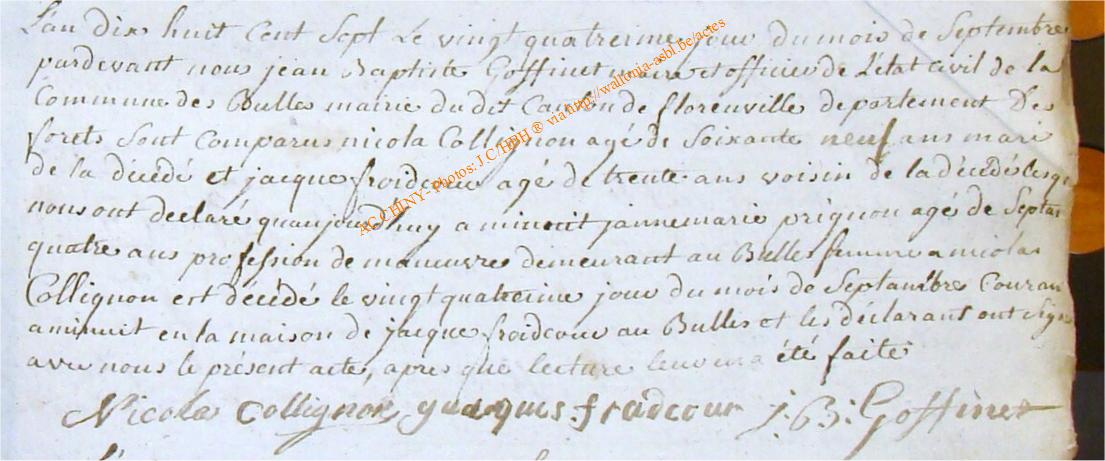 L'an dix huit Cent Sept Le vingt quatreime jour du mois de Septembre
pardevant nous jean Baptiste Goffinet maire et officier de L'état Civil de la
Commune des Bulles mairie du dit Canton de florenville departement Des
forets Sont Comparus nicola Collignon agé de Soixante neuf ans mari
de la décédé et jacque froidcour agé de trente ans voisin de la décédé lesqu
nous ont declaré quaujourdhuy a minuit jannemarie prignon agé de Septan
quatre ans profession de manœuvre demeurant au Bulles femme a nicolas
Collignon est décédé le vingt quatreime jour du mois de Septambre Couran
a minuit en la maison de jacque froidcour au Bulles et les déclarant ont signé
avu nous le présent acte, apres que lecture leur en a été faite
Nicola Collignon jacques fradcour J: B: Goffinet
AC CHINY - Photos: J.C/HBH ® via http://wallonia-asbl.be/actes